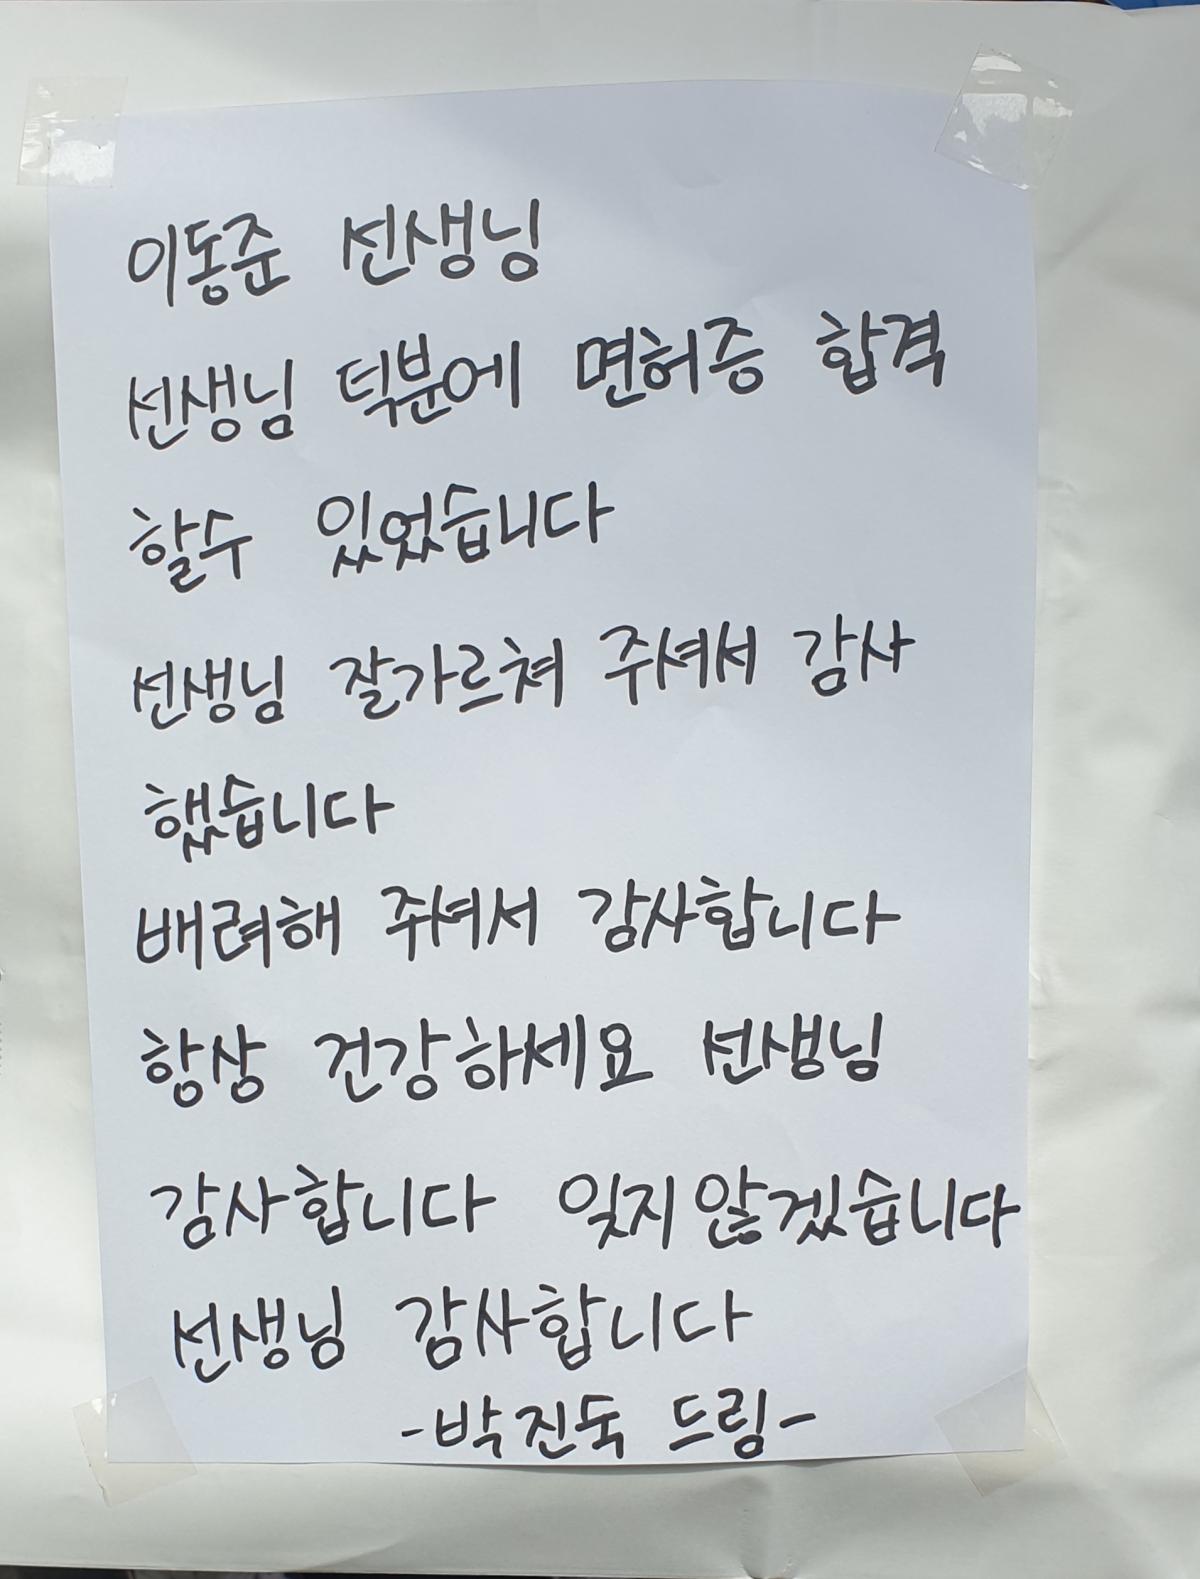 이동준 선생님
선생님 턱분에 면허증 합격
할수 있었습니다
선생님 잘가르쳐 주셔서 감사
했습니다
배려해 주셔서 감사합니다
항상 건강하세요 선생님
감사합니다 잊지않겠습니다
선생님 감사합니다
-박진숙 드림-